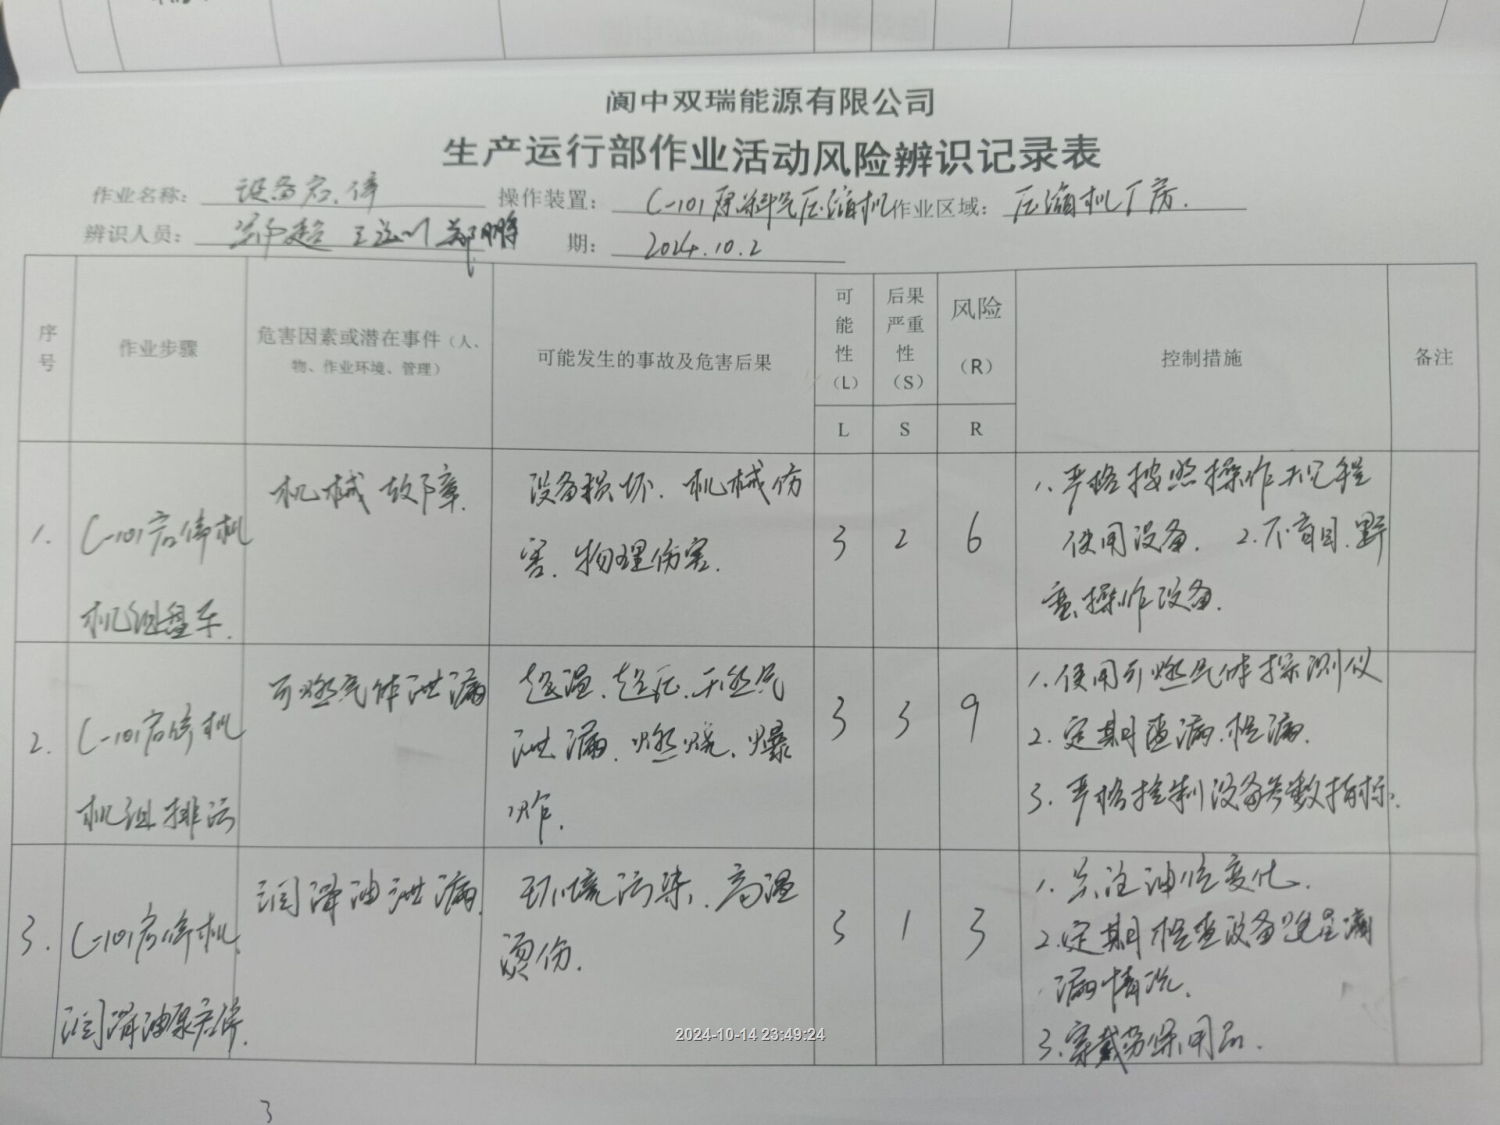 阆中双瑞能源有限公司
生产运行部作业活动风险辨识记录表
作业名称： 设备启、停 操作装置： C-101原料气压缩机 作业区域： 压缩机厂房.
辨识人员： 郑鹏 期： 2024.10.2
序号 作业步骤 危害因素或潜在事件（人、物、作业环境、管理） 可能发生的事故及危害后果 可能性（L） 后果严重性（S） 风险（R） 控制措施 备注
L S R
1. C-101启停机 机械故障. 设备损坏、机械伤 3 2 6 1、严格按照操作规程
机组盘车. 害、物理伤害. 使用设备. 2.不盲目、野
蛮操作设备.
2. C-101启停机 可燃气体泄漏 超温、超压、天然气 3 3 9 1.使用可燃气体探测仪
机组排污 泄漏、燃烧、爆 2.定期查漏、检漏.
炸. 3.严格控制设备参数指标.
3. C-101启停机、 润滑油泄漏. 环境污染、高温 3 1 3 1、关注油位变化.
润滑油泵启停. 烫伤. 2.定期检查设备跑冒滴
漏情况.
3.穿戴劳保用品.
2024-10-14 23:49:24
3